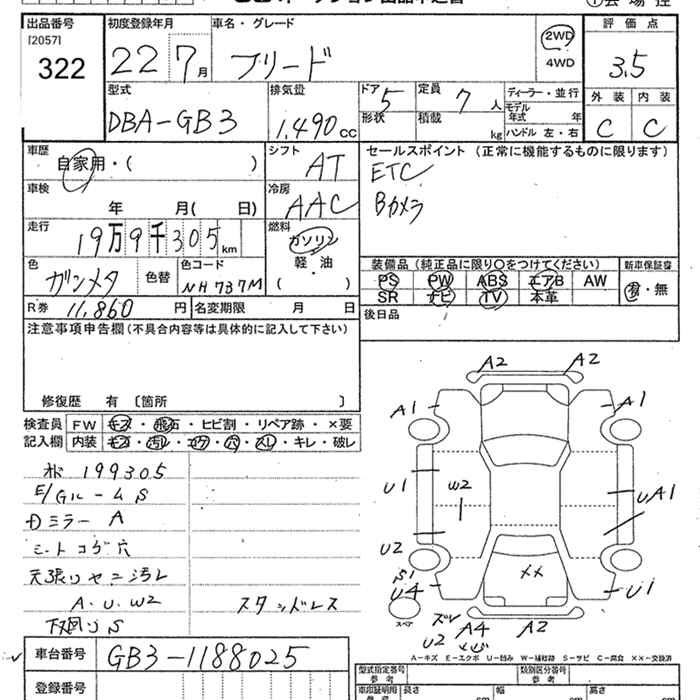 出品番号
[2057]
322
初度登録年月
22 7月
車名・グレード
フリード
2WD
4WD
評価点
3.5
外装 内装
C C
型式
DBA-GB3
排気量
1,490cc
ドア 5
形状
定員 7人
積載 kg
ディーラー・並行
モデル年式 年
ハンドル 左・右
車歴
自家用・( )
シフト
AT
セールスポイント (正常に機能するものに限ります)
ETC
Bカメラ
車検
年 月( 日)
冷房
AAC
走行
19万9千305km
燃料
ガソリン
軽・油
( )
色
ガンメタ
色替
色コード
NH737M
装備品(純正品に限り○をつけてください)
新車保証書
PS PW ABS エアB AW
SR ナビ TV 本革
有・無
R券 11,860円
名変期限 月 日
後日品
注意事項申告欄(不具合内容等は具体的に記入して下さい)
修復歴 有 〔箇所 〕
検査員記入欄
FW キズ・飛石・ヒビ割・リペア跡・×要
内装 キズ・汚レ・コゲ・穴・スレ・キレ・破レ
199305
E/Gルーム S
ミラー A
シートコゲ穴
天張りヤニ汚レ
A.U.W2
下廻りS
スタッドレス
A2 A2
A1 A1
U1 W2 UA1
U2
S1
U4 ×× U1
スペア
U2 A4 A2
A-キズ E-エクボ U-凹み W-補修跡 S-サビ C-腐食 ××-交換済
車台番号 GB3-1188025
登録番号
型式指定番号 類別区分番号
車庫証明用参考 長さ cm 幅 cm 高さ cm